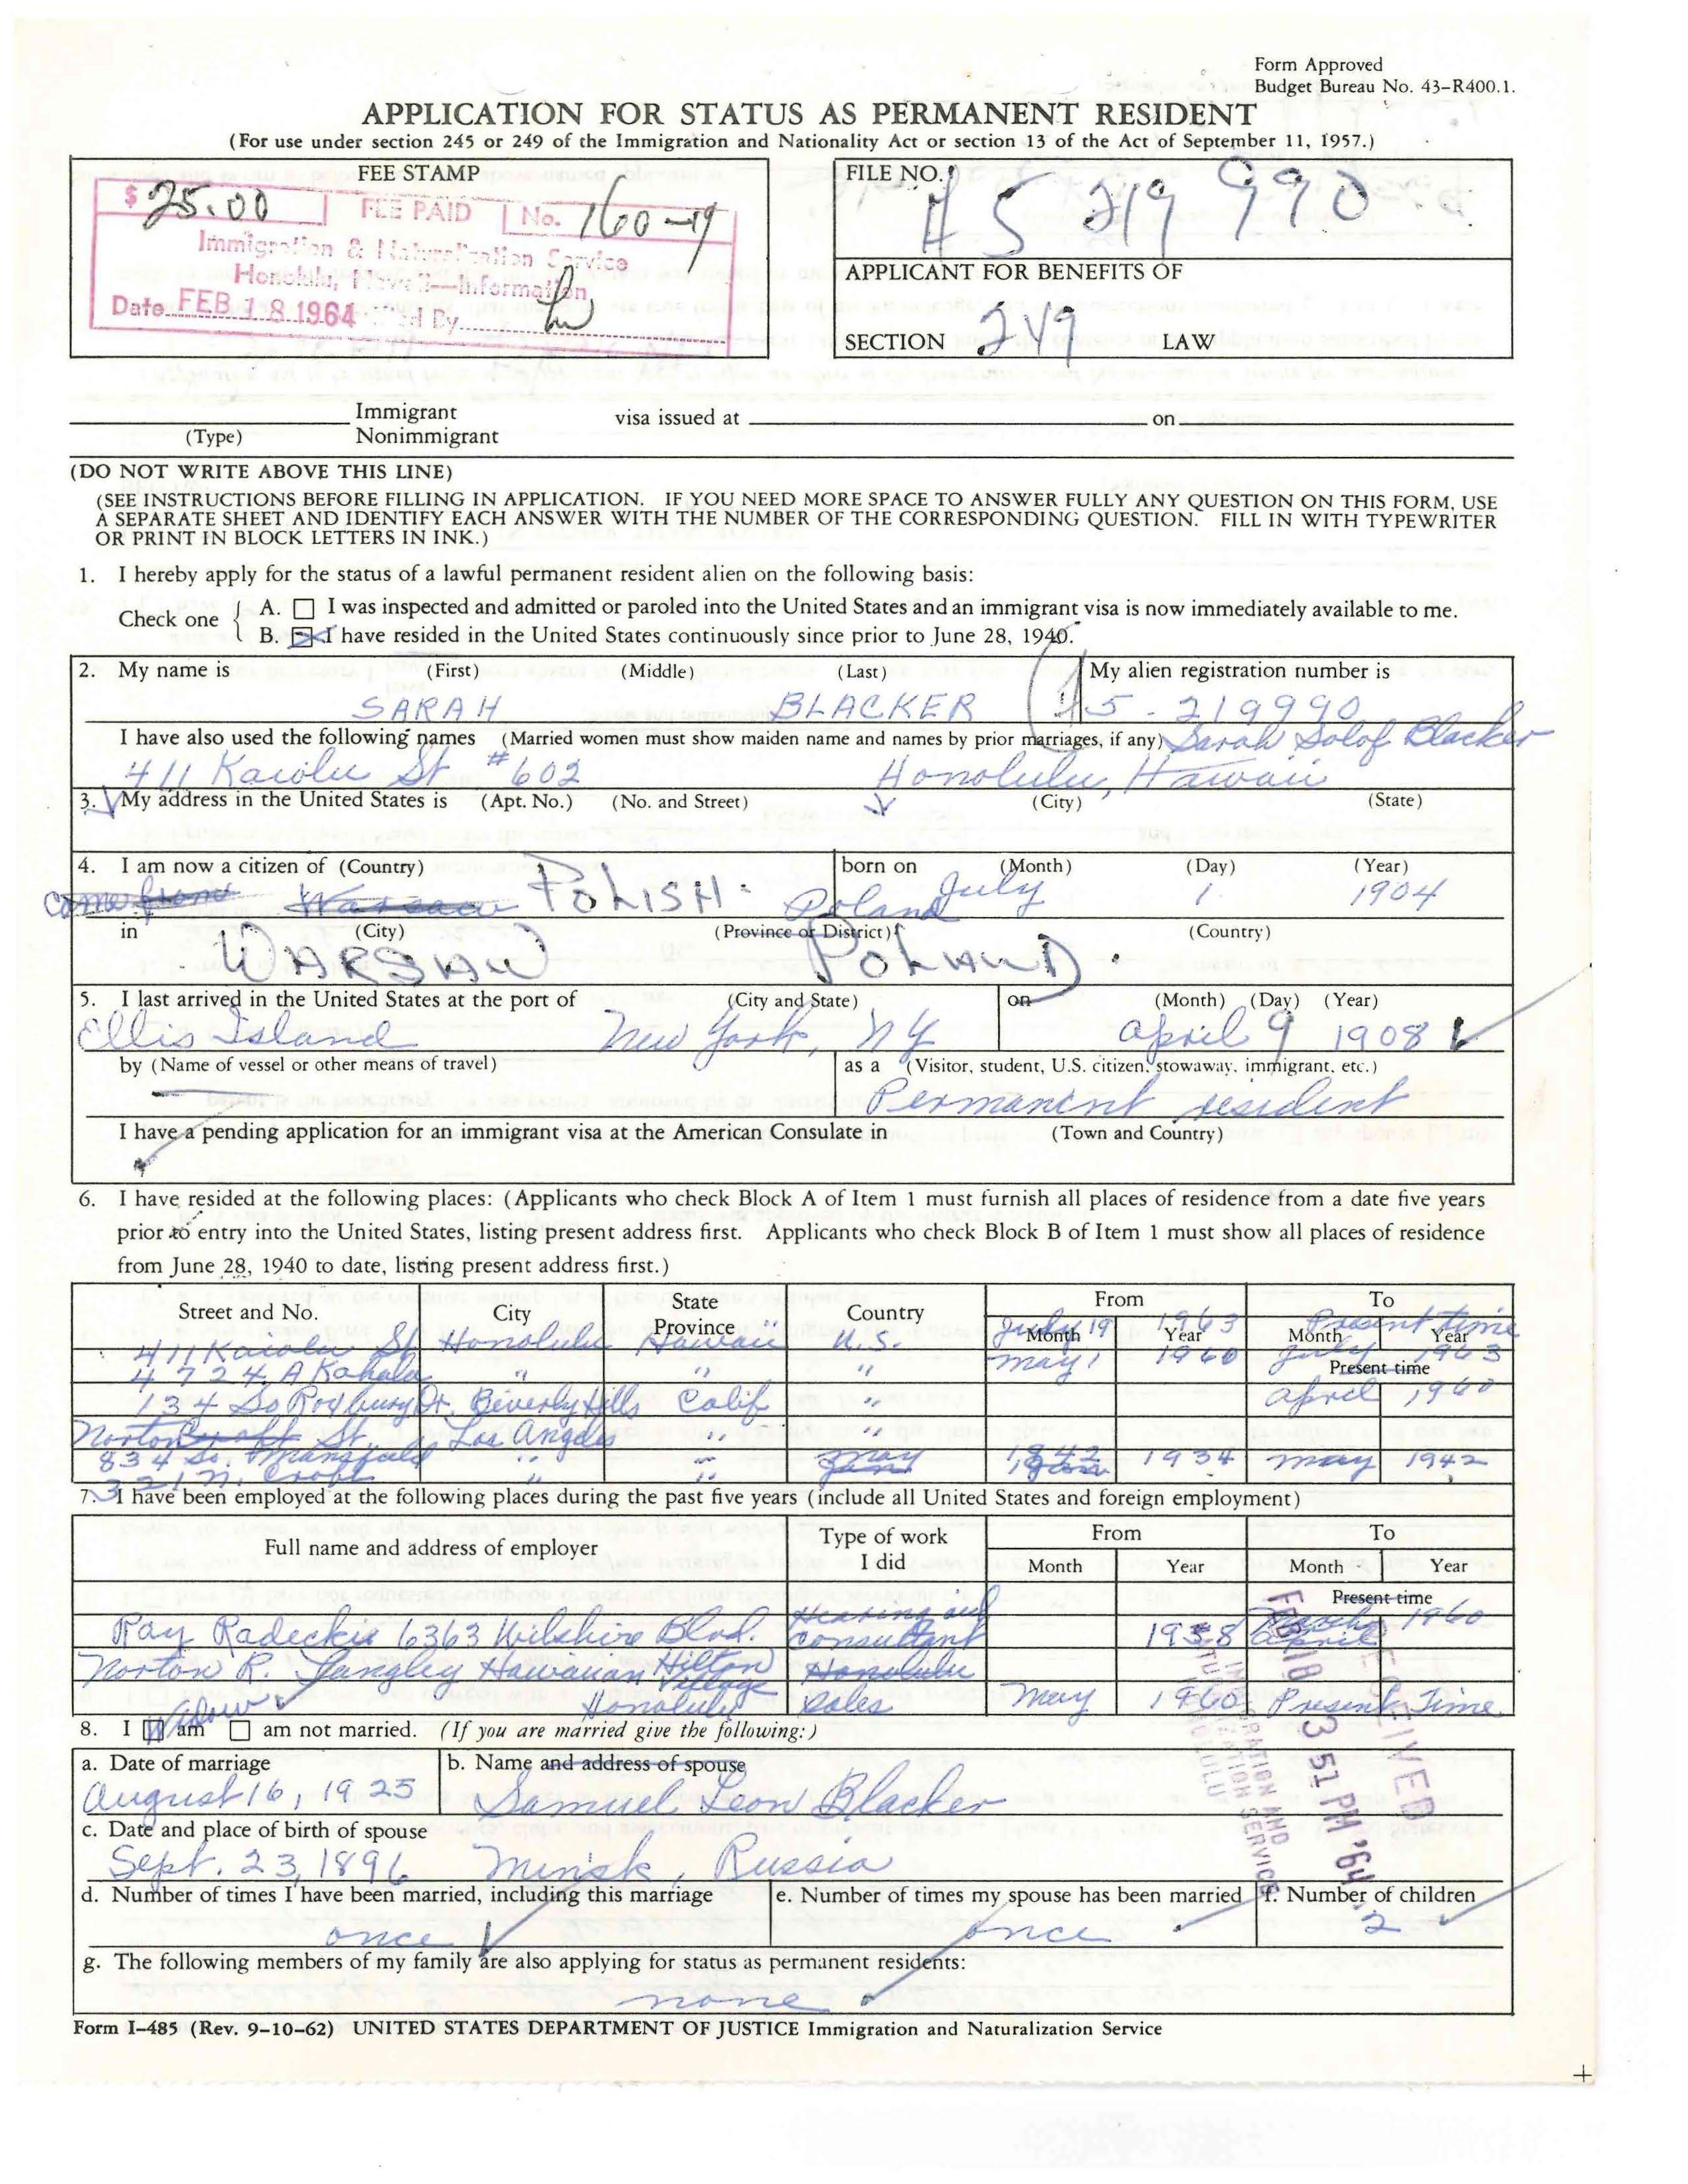 Form Approved
Budget Bureau No. 43-R400.1.
APPLICATION FOR STATUS AS PERMANENT RESIDENT
(For use under section 245 or 249 of the Immigration and Nationality Act or section 13 of the Act of September 11, 1957.)
FEE STAMP
$ 25.00 FEE PAID No. 160-19
Immigration & Naturalization Service
Honolulu, Hawaii—Information
Date FEB 18 1964 By
FILE NO. A5 219 990
APPLICANT FOR BENEFITS OF
SECTION 249 LAW
Immigrant visa issued at on
(Type) Nonimmigrant
(DO NOT WRITE ABOVE THIS LINE)
(SEE INSTRUCTIONS BEFORE FILLING IN APPLICATION. IF YOU NEED MORE SPACE TO ANSWER FULLY ANY QUESTION ON THIS FORM, USE
A SEPARATE SHEET AND IDENTIFY EACH ANSWER WITH THE NUMBER OF THE CORRESPONDING QUESTION. FILL IN WITH TYPEWRITER
OR PRINT IN BLOCK LETTERS IN INK.)
1. I hereby apply for the status of a lawful permanent resident alien on the following basis:
Check one
A. I was inspected and admitted or paroled into the United States and an immigrant visa is now immediately available to me.
B. I have resided in the United States continuously since prior to June 28, 1940.
2. My name is (First) (Middle) (Last) My alien registration number is
SARAH BLACKER A5-219990
I have also used the following names (Married women must show maiden name and names by prior marriages, if any) Sarah Solof Blacker
411 Kaiolu St #602 Honolulu, Hawaii
3. My address in the United States is (Apt. No.) (No. and Street) (City) (State)
4. I am now a citizen of (Country) born on (Month) (Day) (Year)
come from Warsaw POLISH. Poland July 1 1904
in (City) (Province or District) (Country)
WARSAW POLAND.
5. I last arrived in the United States at the port of (City and State) on (Month) (Day) (Year)
Ellis Island New York, NY april 9 1908
by (Name of vessel or other means of travel) as a (Visitor, student, U.S. citizen, stowaway, immigrant, etc.)
— Permanent resident
I have a pending application for an immigrant visa at the American Consulate in (Town and Country)
6. I have resided at the following places: (Applicants who check Block A of Item 1 must furnish all places of residence from a date five years
prior to entry into the United States, listing present address first. Applicants who check Block B of Item 1 must show all places of residence
from June 28, 1940 to date, listing present address first.)
Street and No. City State Province Country From To
Month Year Month Year
411 Kaiolu St Honolulu Hawaii U.S. July 19 1963 Present time
4724 A Kahala " " " May 1 1960 July 1963
Present time
134 So Roxbury Dr. Beverly Hills Calif " april 1960
Norton St. Los Angeles " "
834 So. Mansfield " " may 1942 1934 may 1942
321 N. Croft " "
7. I have been employed at the following places during the past five years (include all United States and foreign employment)
Full name and address of employer Type of work I did From To
Month Year Month Year
Present time
Ray Radeckis 6363 Wilshire Blvd. Hearing aid consultant 1958 March april 1960
Norton R. Langley Hawaiian Hilton Village Honolulu
Honolulu Sales May 1960 Present Time
8. I Widow am am not married. (If you are married give the following:)
a. Date of marriage b. Name and address of spouse
August 16, 1925 Samuel Leon Blacker
c. Date and place of birth of spouse
Sept. 23, 1896 Minsk, Russia
d. Number of times I have been married, including this marriage e. Number of times my spouse has been married f. Number of children
once once 2
g. The following members of my family are also applying for status as permanent residents:
none
RECEIVED
FEB 18 3 51 PM '64
IMMIGRATION AND
NATURALIZATION SERVICE
HONOLULU
Form I-485 (Rev. 9-10-62) UNITED STATES DEPARTMENT OF JUSTICE Immigration and Naturalization Service